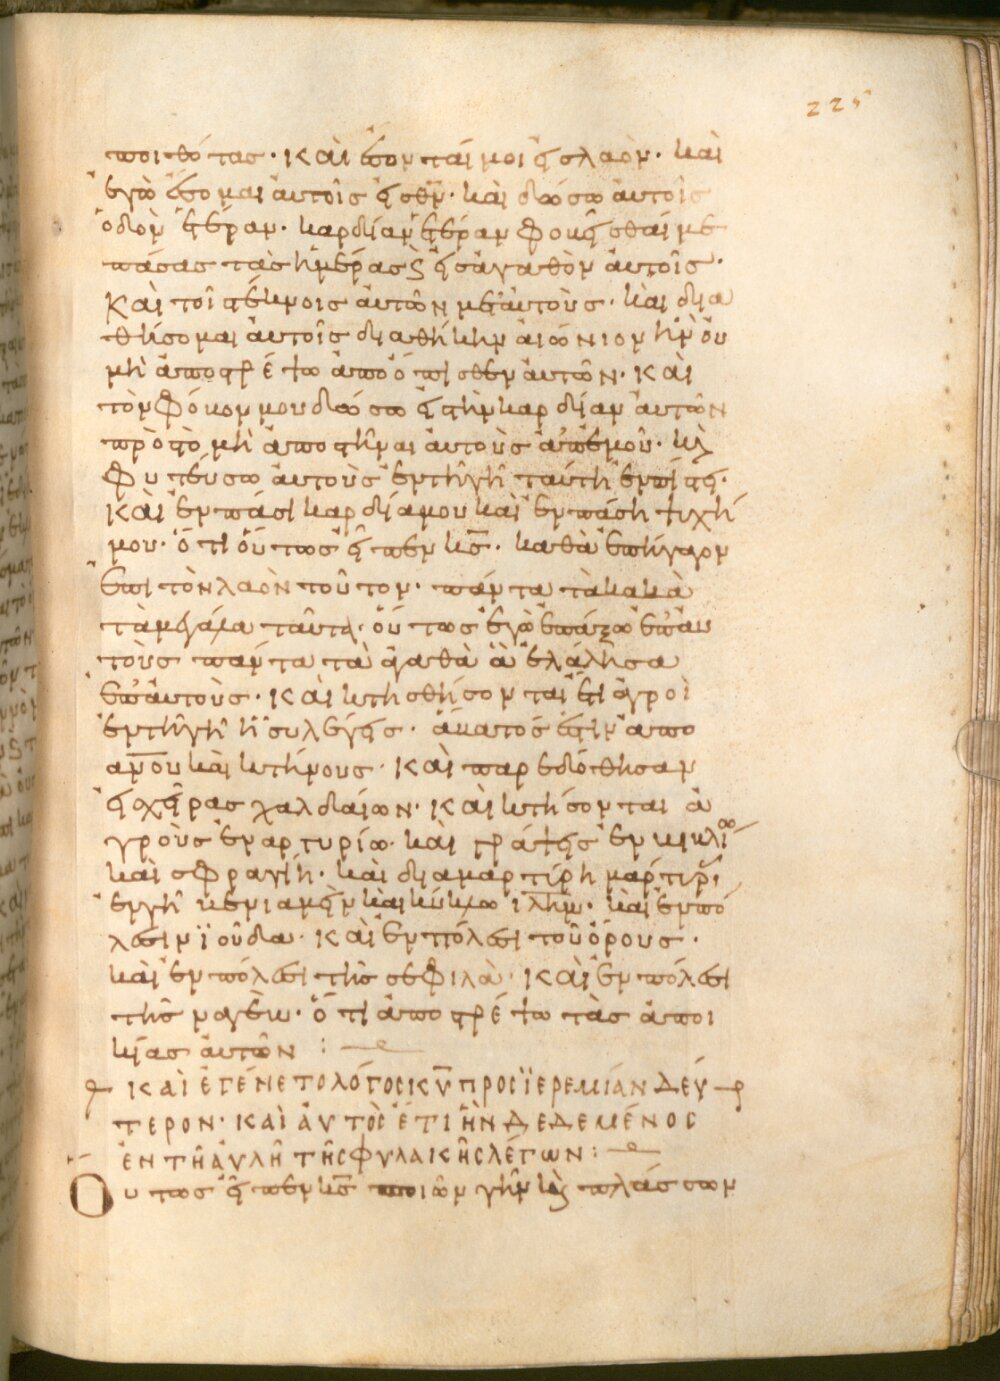 225
ποιθότας· καὶ ἔσονταί μοι εἰς λαόν· καὶ
ἐγὼ ἔσομαι αὐτοῖς εἰς θν̄· καὶ δώσω αὐτοῖς
ὁδὸν ἑτέραν· καρδίαν ἑτέραν φοβεῖσθαί με
πάσας τὰς ἡμέρας ϗ εἰς ἀγαθὸν αὐτοῖς·
καὶ τοῖ τέκνοις αὐτῶν μετ αὐτοὺς· καὶ δια
θήσομαι αὐτοῖς διαθήκην αἰώνιον ἣν οὐ
μὴ ἀποστρέψω ἀπὸ ὄπισθεν αὐτῶν· καὶ
τὸν φόβον μου δώσω εἰς τὴν καρδίαν αὐτῶν
πρὸς τὸ μὴ ἀποστῆναι αὐτοὺς ἀπ ἐμοῦ· κὲ
φυτεύσω αὐτοὺς ἐν τῆ γῆ ταύτη ἐν πίστει·
καὶ ἐν πάσι καρδία μου καὶ ἐν πάση ψυχῆ
μου· ὅτι οὕτως εἶπεν κς̄· καθὰ ἐπήγαγον
ἐπι τὸν λαὸν τοῦτον· πάντα τὰ κακὰ
τὰ μεγάλα ταῦτα· οὕτως ἐγὼ ἐπάξω ἐπ αυ
τοὺς πάντα τὰ ἀγαθὰ ἃ ἐλάλησα
ἐπ αὐτοὺς· καὶ κτησθήσονται ἔτι ἀγροὶ
ἐν τῆ γῆ ἧ συ λέγεις· ἄβατος ἐστιν ἀπο
ἀν̄ου καὶ κτήνους· καὶ παρεδόθησαν
εἰς χεῖρας χαλδαίων· καὶ κτήσονται ἀ
γροὺς ἐν ἀργυρίω· καὶ γράψεις ἐν βιβλίω
καὶ σφραγίῆ· καὶ διαμαρτύρη μάρτυρας
ἐν γῆ βενιαμεὶν καὶ κύκλω ἰλη̄μ· καὶ ἐν πό
λεσιν ϊούδα· καὶ ἐν πόλεσι τοῦ ὄρους·
καὶ ἐν πόλεσι τῆς σεφιλὰ· καὶ ἐν πόλεσι
τῆς ναγὲβ· ὅτι ἀποστρέψω τὰς ἀποι
κίας αὐτῶν :
καὶ ἐγένετο λόγος κῡ πρὸς ϊερεμίαν δεύ
τερον· καὶ αὐτὸς ἔτι ἦν δεδεμένος
ἐν τῆ αὐλῆ τῆς φυλακῆς λέγων :
Ουτως εἶπεν κς̄ ποιῶν γῆν καὶ πλάσσων